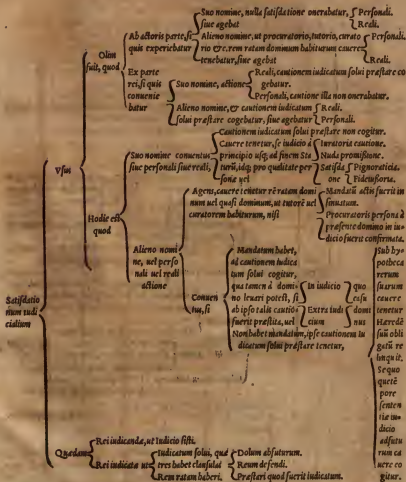 Satisdatio
num iudi
cialium
vsus
Olim
fuit, quod
Ab actoris parte, si
quis experiebatur
Suo nomine, nulla satisdatione onerabatur,
siue agebat
Personali.
Reali.
Alieno nomine, ut procuratorio, tutorio, curato
rio &c. rem ratam dominum habiturum cauere
tenebatur, siue agebat
Personali.
Reali.
Ex parte
rei, si quis
conuenie
batur
Suo nomine, actione
Reali, cautionem iudicatum solui præstare co
gebatur.
Personali, cautione illa non onerabatur.
Alieno nomine, & cautionem iudicatum
solui præstare cogebatur, siue agebatur
Reali.
Personali.
Hodie est
quod
Suo nomine conuentus
siue personali siue reali,
Cautionem iudicatum solui præstare non cogitur.
Cauere tenetur, se iudicio à
principio usq; ad finem sta
turū, idq; pro qualitate per
sonæ uel
Iuratoria cautione.
Nuda promissione.
Satisda
one
Pignoraticia.
Fideiussoria.
Alieno nomi
ne, uel perso
nali uel reali
actione
Agens, cauere tenetur rē ratam domi
num uel quasi dominum, ut tutorē uel
curatorem habiturum, nisi
Mandatū actis fuerit in
sinuatum.
Procuratoris persona à
præsente domino in iu
dicio fuerit confirmata.
Conuen
tus, si
Mandatum habet,
ad cautionem iudica
tum solui cogitur,
qua tamen à domi
no leuari potest, si
ab ipso talis cautio
fuerit præstita, uel
In iudicio
Extra iudi
cium
quo
casu
domi
nus
Non habet mandatum, ipse cautionem iu
dicatum solui præstare tenetur,
Sub hy=
potheca
rerum
suarum
cauere
tenetur
Hæredē
suū obli
gatū re
linquit.
Se quo
que tē
pore
senten
tiæ in
dicio
adfutu
rum ca
uere co
gitur.
Quædam
Rei iudicandæ, ut Iudicio sisti.
Rei iudicatæ ut
Iudicatum solui, quæ
tres habet clausulas
Dolum abfuturum.
Reum defendi.
Præstari quod fuerit iudicatum.
Rem ratam haberi.